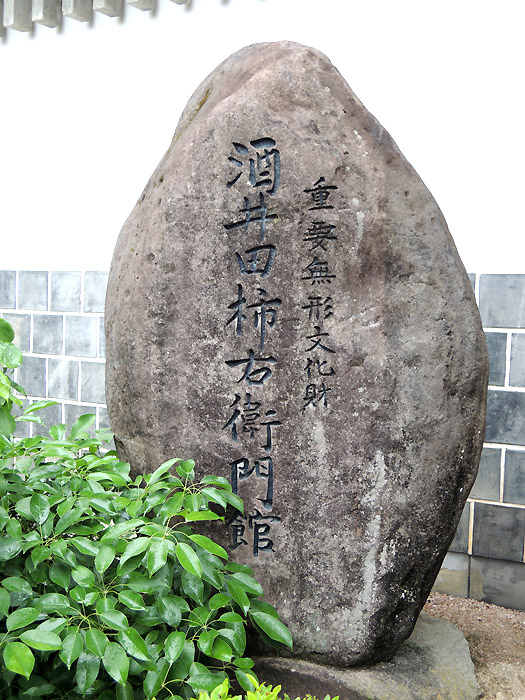 重要無形文化財
酒井田柿右衛門館